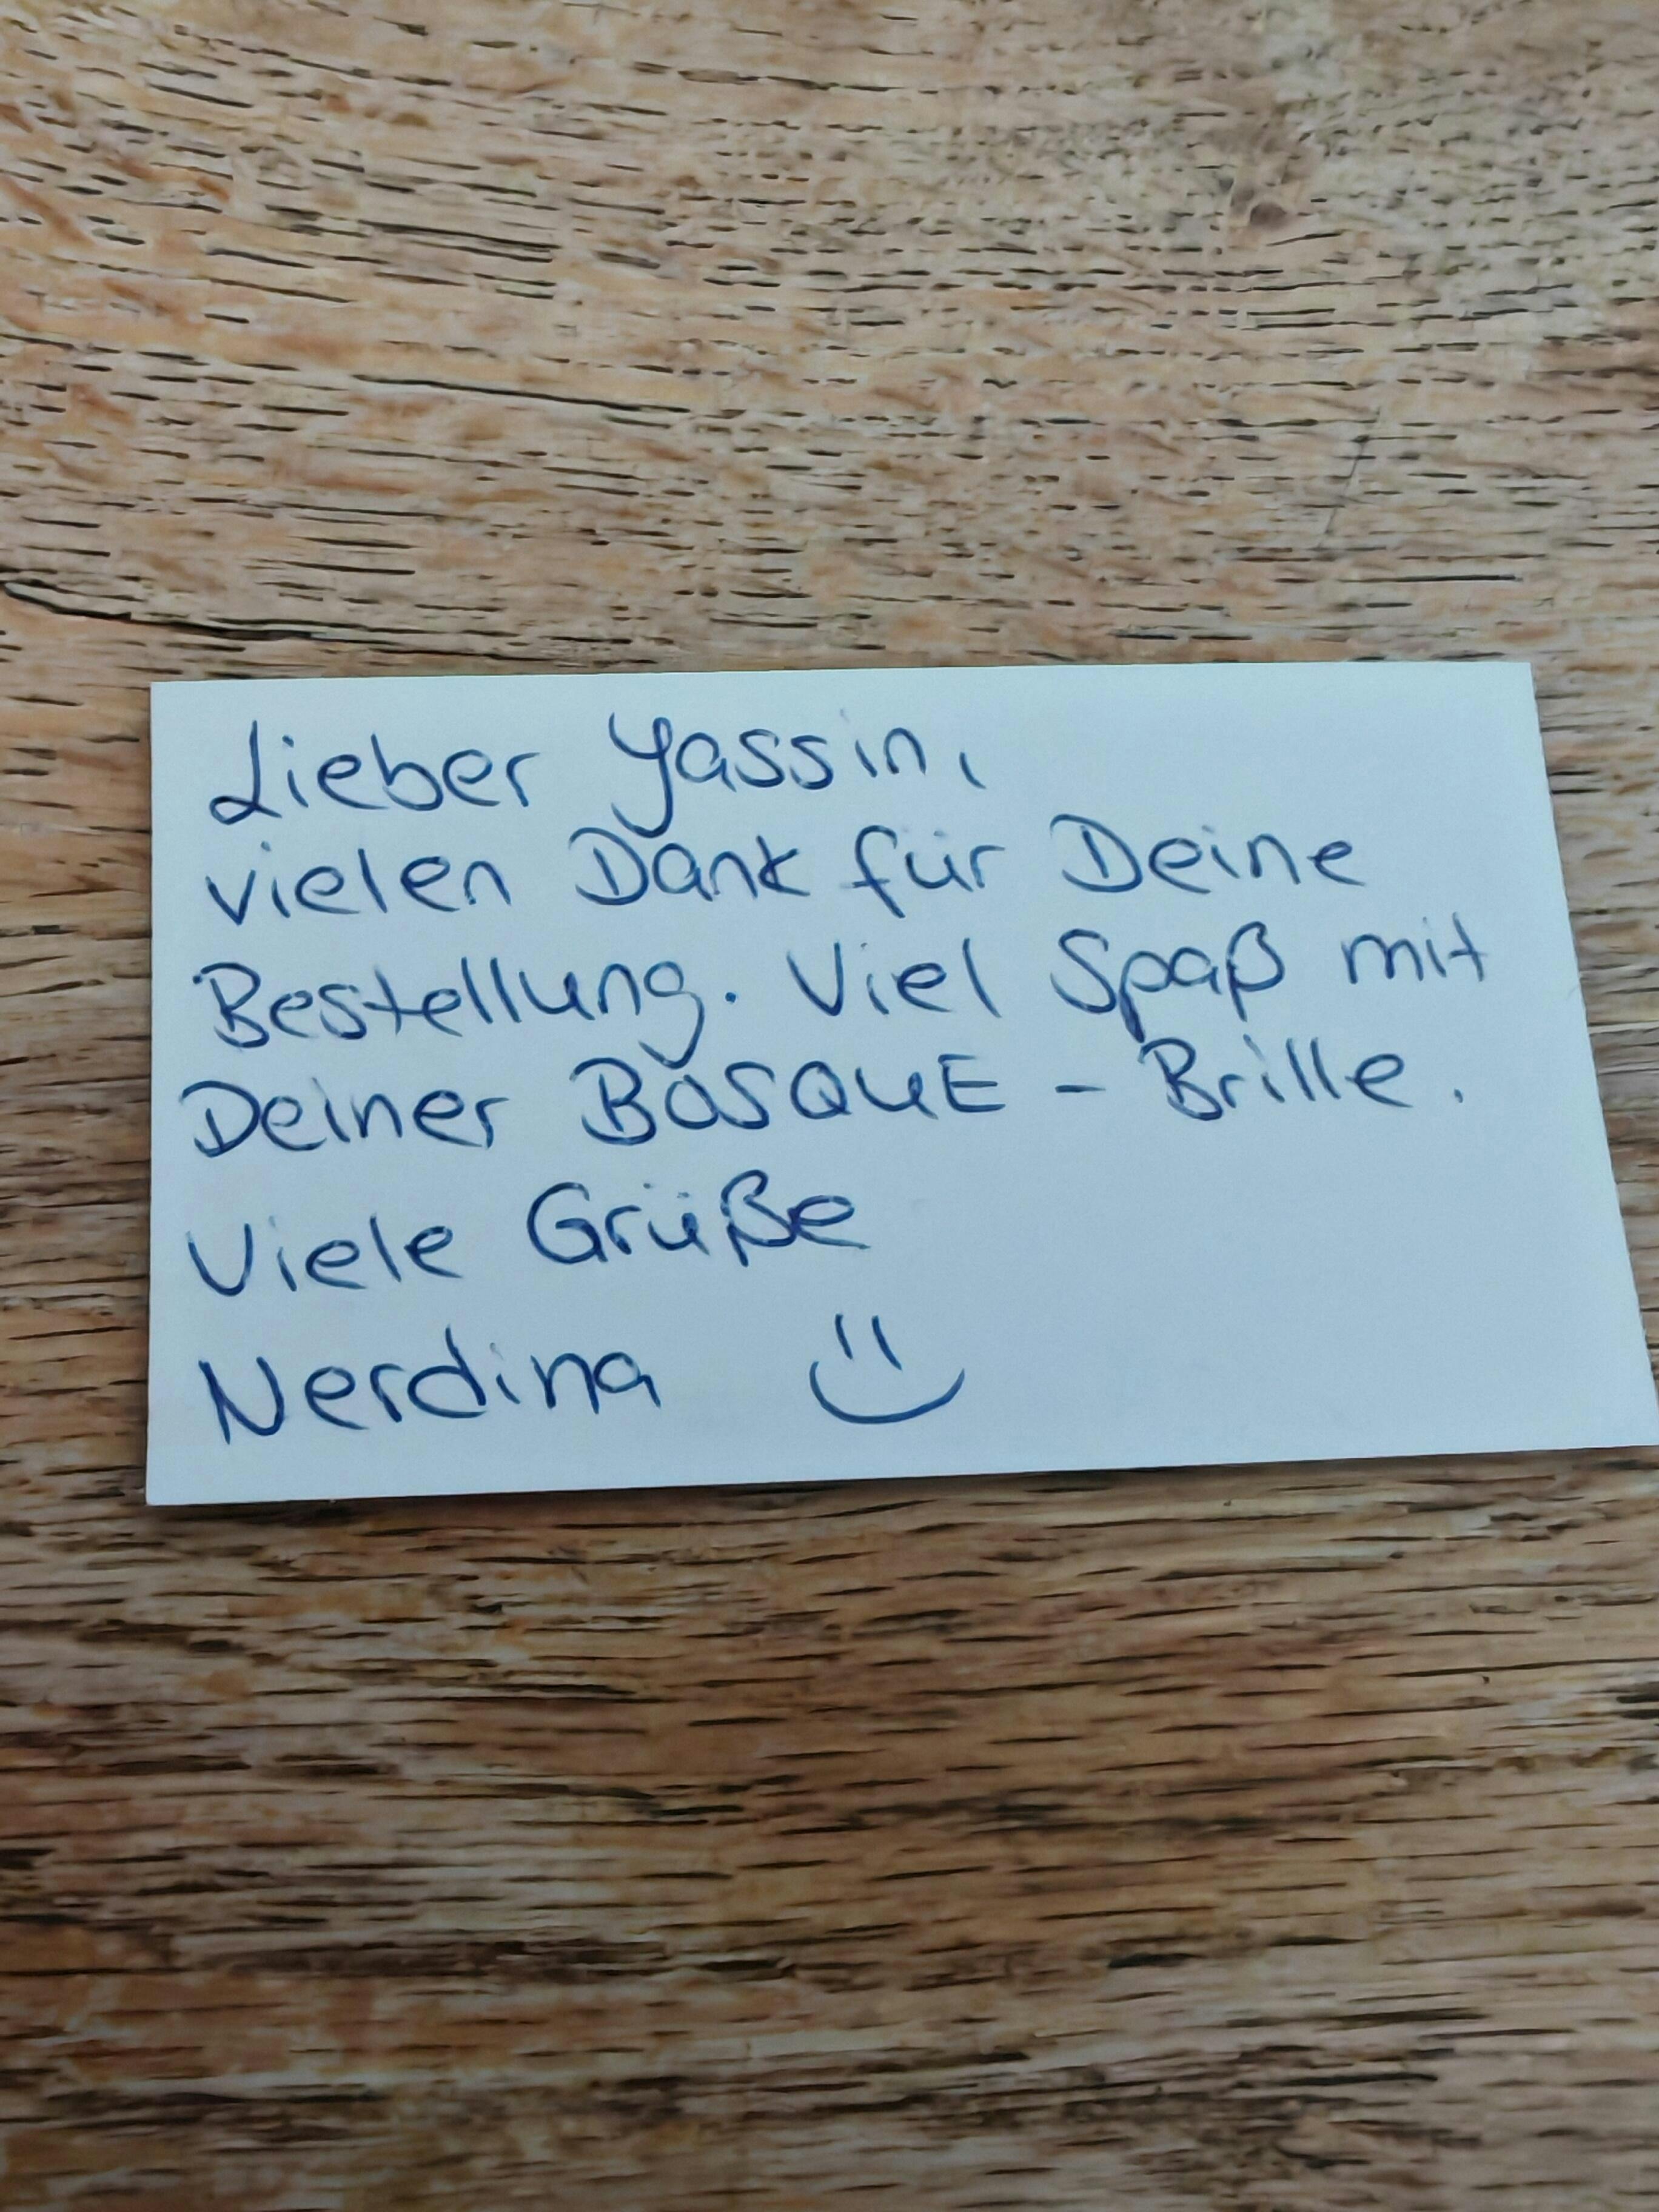 Lieber Yassin,
vielen Dank für Deine
Bestellung. Viel Spaß mit
Deiner BOSQUE - Brille.
Viele Grüße
Nerdina